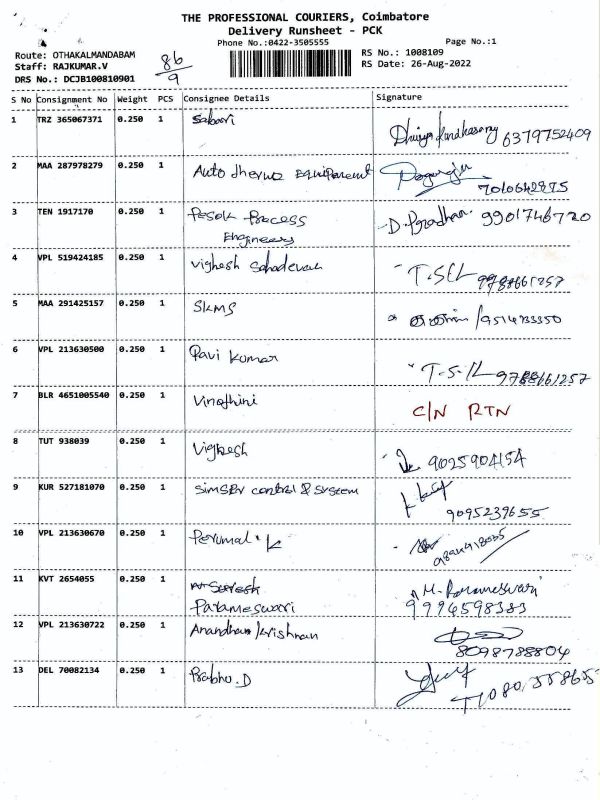 THE PROFESSIONAL COURIERS, Coimbatore
Delivery Runsheet - PCK
Phone No.:0422-3505555 Page No.:1
Route: OTHAKALMANDABAM 86/9 RS No.: 1008109
Staff: RAJKUMAR.V RS Date: 26-Aug-2022
DRS No.: DCJB100810901
S No Consignment No Weight PCS Consignee Details Signature
1 TRZ 365067371 0.250 1 Saboori
6379752409
2 MAA 287978279 0.250 1 Auto
7010642875
3 TEN 1917170 0.250 1 Process D. 9901746720
Engineers
4 VPL 519424185 0.250 1 Vighesh Sahadevan T.S.
5 MAA 291425157 0.250 1 SKMS
6 VPL 213630500 0.250 1 Ravi Kumar T.S. 9788661257
7 BLR 4651005540 0.250 1 Vinothini C/N RTN
8 TUT 938039 0.250 1 Vighesh 9025904154
9 KUR 527181070 0.250 1 control & System
9095239655
10 VPL 213630670 0.250 1 Perumal. K
11 KVT 2654055 0.250 1 Suresh M. Parameswari
Parameswari 9994598383
12 VPL 213630722 0.250 1 Anandhan Krishnan
8098788804
13 DEL 70082134 0.250 1 Prabhu. D